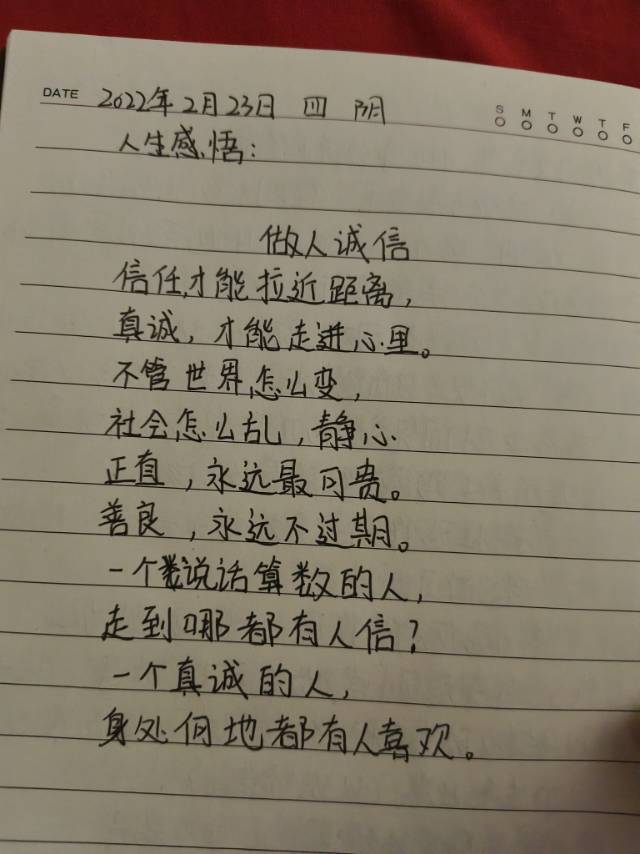 DATE 2022年2月23日 四 阴
S M T W T F
人生感悟:
做人诚信
信任,才能拉近距离,
真诚,才能走进心里。
不管世界怎么变,
社会怎么乱,静心
正直,永远最可贵。
善良,永远不过期。
一个说话算数的人,
走到哪都有人信?
一个真诚的人,
身处何地都有人喜欢。